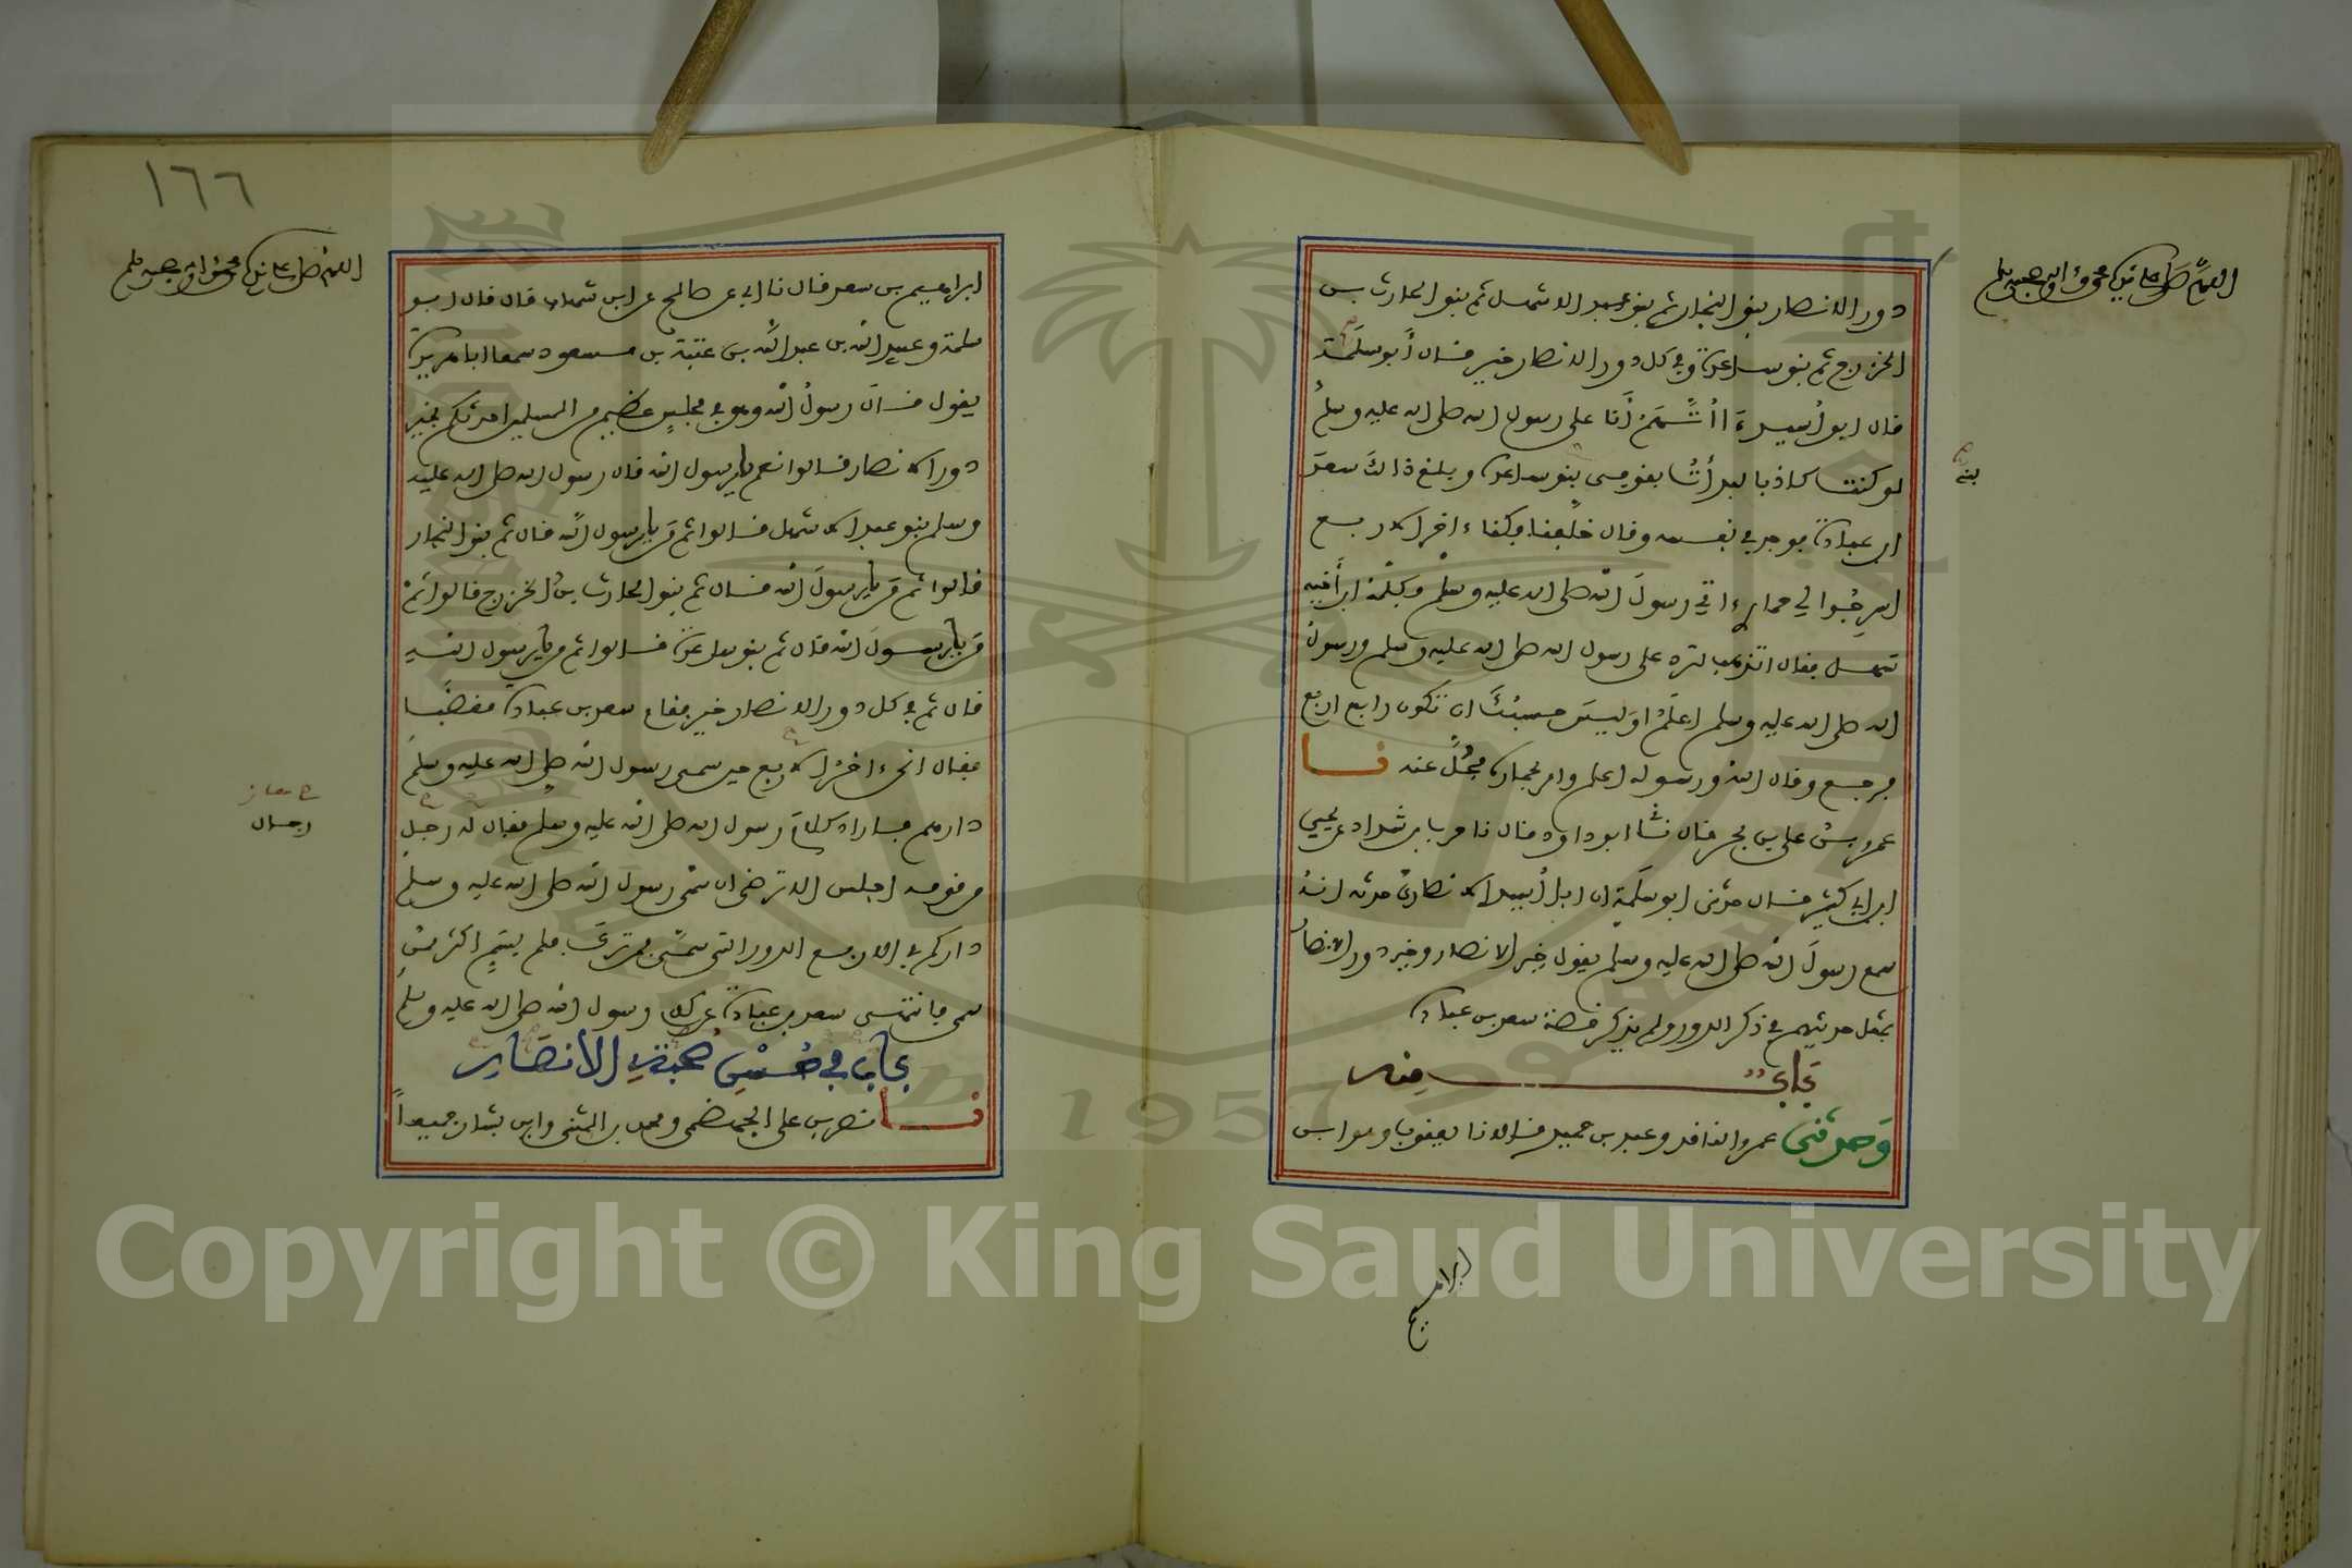 اللهم صل على نبيك محمد وءاله وصحبه وسلم
دور الانصار بنو النجار ثم بنو عبد الاشهل ثم بنو الحارث بن
الخزرج ثم بنو ساعدة وفي كل دور الانصار خير قال أبو سلمة
قال ابو أسيد ءااتهم أنا على رسول الله صلى الله عليه وسلم
لو كنت كاذبا لبدأت بقومي بنو ساعدة وبلغ ذالك سعد
بني
ابن عبادة فوجد في نفسه وقال خلفنا فكنا ءاخر الاربع
اسرجوا لي حماري ءاتي رسول الله صلى الله عليه وسلم وكلمه ابن أخيه
سهل فقال اتذهب لترد على رسول الله صلى الله عليه وسلم ورسول
الله صلى الله عليه وسلم اعلم اوليس حسبك ان تكون رابع اربع
فرجع وقال الله ورسوله اعلم وامر بحماره فحل عنه نا
عمرو بن علي بن بحر قال نا ابو داود قال نا حرب بن شداد عن يحيى
ابن ابي كثير قال حدثني ابو سلمة ان ابا أسيد الانصاري حدثه انه
سمع رسول الله صلى الله عليه وسلم يقول خير الانصار وخير دور الانصار
بمثل حديثهم في ذكر الدور ولم يذكر قصة سعد بن عبادة
باب منه
وحدثني عمرو الناقد وعبد بن حميد قالا نا يعقوب وهو ابن
ابراهيم
١٦٦
اللهم صل على نبيك محمد وءاله وصحبه وسلم
ابراهيم بن سعد قال نا ابي عن صالح عن ابن شهاب قال قال ابو
سلمة وعبيد الله بن عبد الله بن عتبة بن مسعود سمعا ابا هريرة
يقول قال رسول الله وهو في مجلس عظيم من المسلمين احدثكم بخير
دور الانصار قالوا نعم يا رسول الله قال رسول الله صلى الله عليه
وسلم بنو عبد الاشهل قالوا ثم من يا رسول الله قال ثم بنو النجار
قالوا ثم من يا رسول الله قال ثم بنو الحارث بن الخزرج قالوا ثم
من يا رسول الله قال ثم بنو ساعدة قالوا ثم من يا رسول الله
قال ثم في كل دور الانصار خير فقام سعد بن عبادة مغضبا
فقال انحن ءاخر الاربع حين سمى رسول الله صلى الله عليه وسلم
دارهم فاراد كلام رسول الله صلى الله عليه وسلم فقال له رجل
رجال
من قومه اجلس الا ترضى ان سمى رسول الله صلى الله عليه وسلم
داركم في الاربع الدور التي سمى فمن ترك فلم يسم اكثر ممن
سمى فانتهى سعد بن عبادة عن كلام رسول الله صلى الله عليه وسلم
باب في حسن صحبة الأنصار
نا نصر بن علي الجهضمي ومحمد بن المثنى وابن بشار جميعا
1957
Copyright © King Saud University